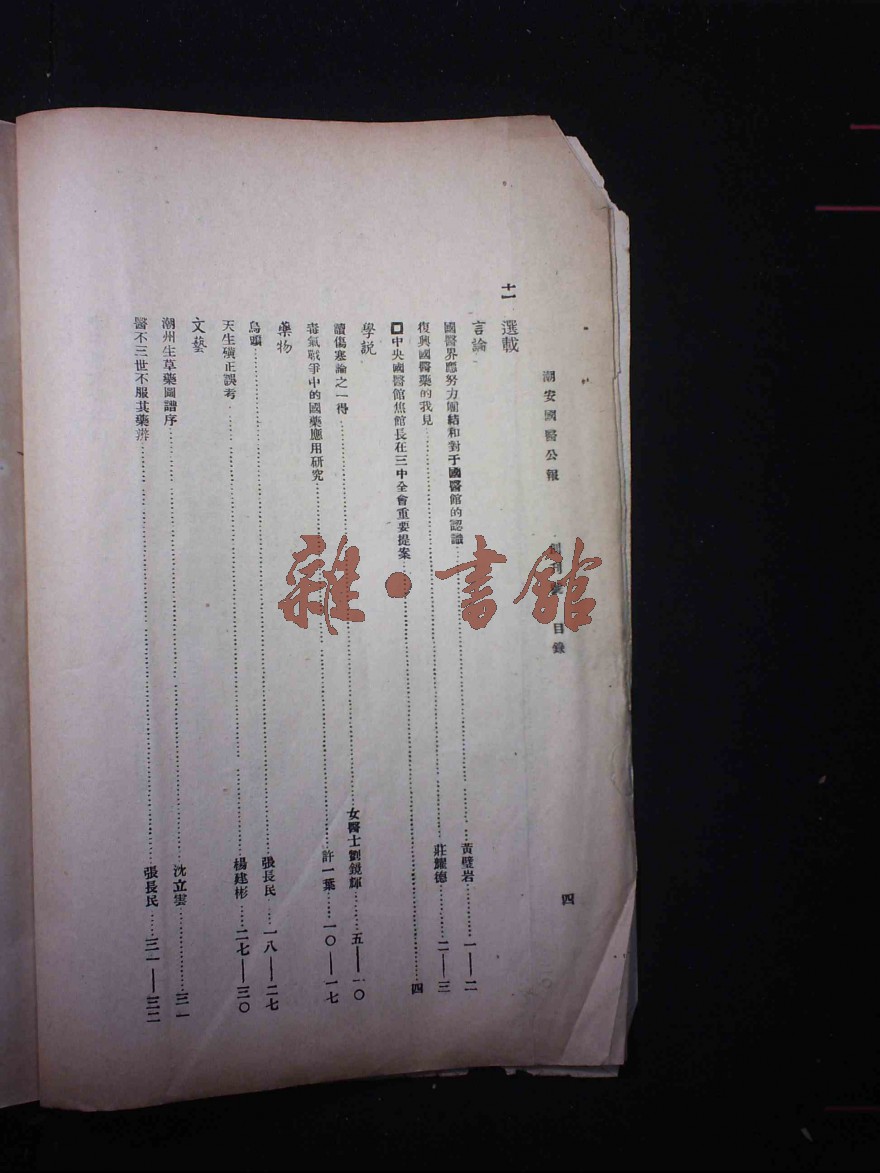 潮安國醫公報　創刊號　目錄　四
十一　選載
言論
國醫界應努力團結和對于國醫館的認識……黃璧岩……一——二
復興國醫藥的我見……莊耀德……二——三
□中央國醫館焦館長在三中全會重要提案……四
學説
讀傷寒論之一得……女醫士劉鏡輝……五——一〇
毒氣戰爭中的國藥應用研究……許一葉……一〇——一七
藥物
烏頭……張長民……一八——二七
天生磺正誤考……楊建彬……二七——三〇
文藝
潮州生草藥圖譜序……沈立雲……三一
醫不三世不服其藥辨……張長民……三一——三二
雜·書館